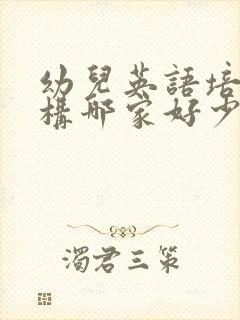 幼兒英語培
構哪家好少
濁君三策